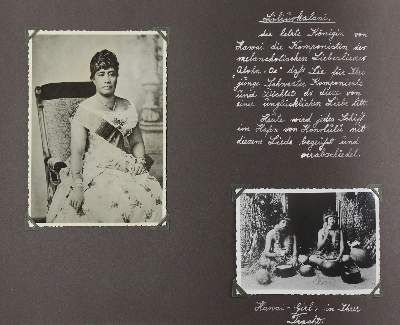 Liliuokalani.
die letzte Königin von
Hawai, die Komponistin des
melancholischen Liebesliedes
"Aloha-Oe" daß Sie für Ihre
junge Schwester Komponierte
und dichtet da diese von
einer unglücklichen Liebe litt.
Heute wird jedes Schiff
im Hafen von Honolulu mit
diesem Liede, begrüßt und
verabschiedet.
Hawai-Girl, in Ihrer
Tracht.